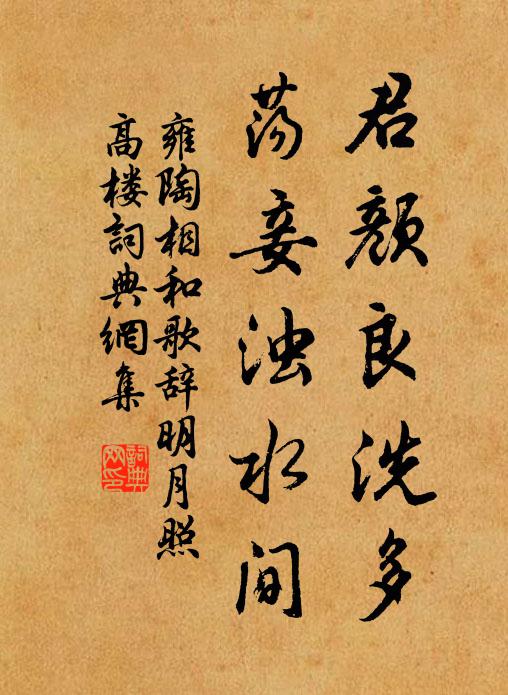 君颜良洗多
荡妾浊水间
雍陶相和歌辞明月照
高楼词典網集
詞典网印